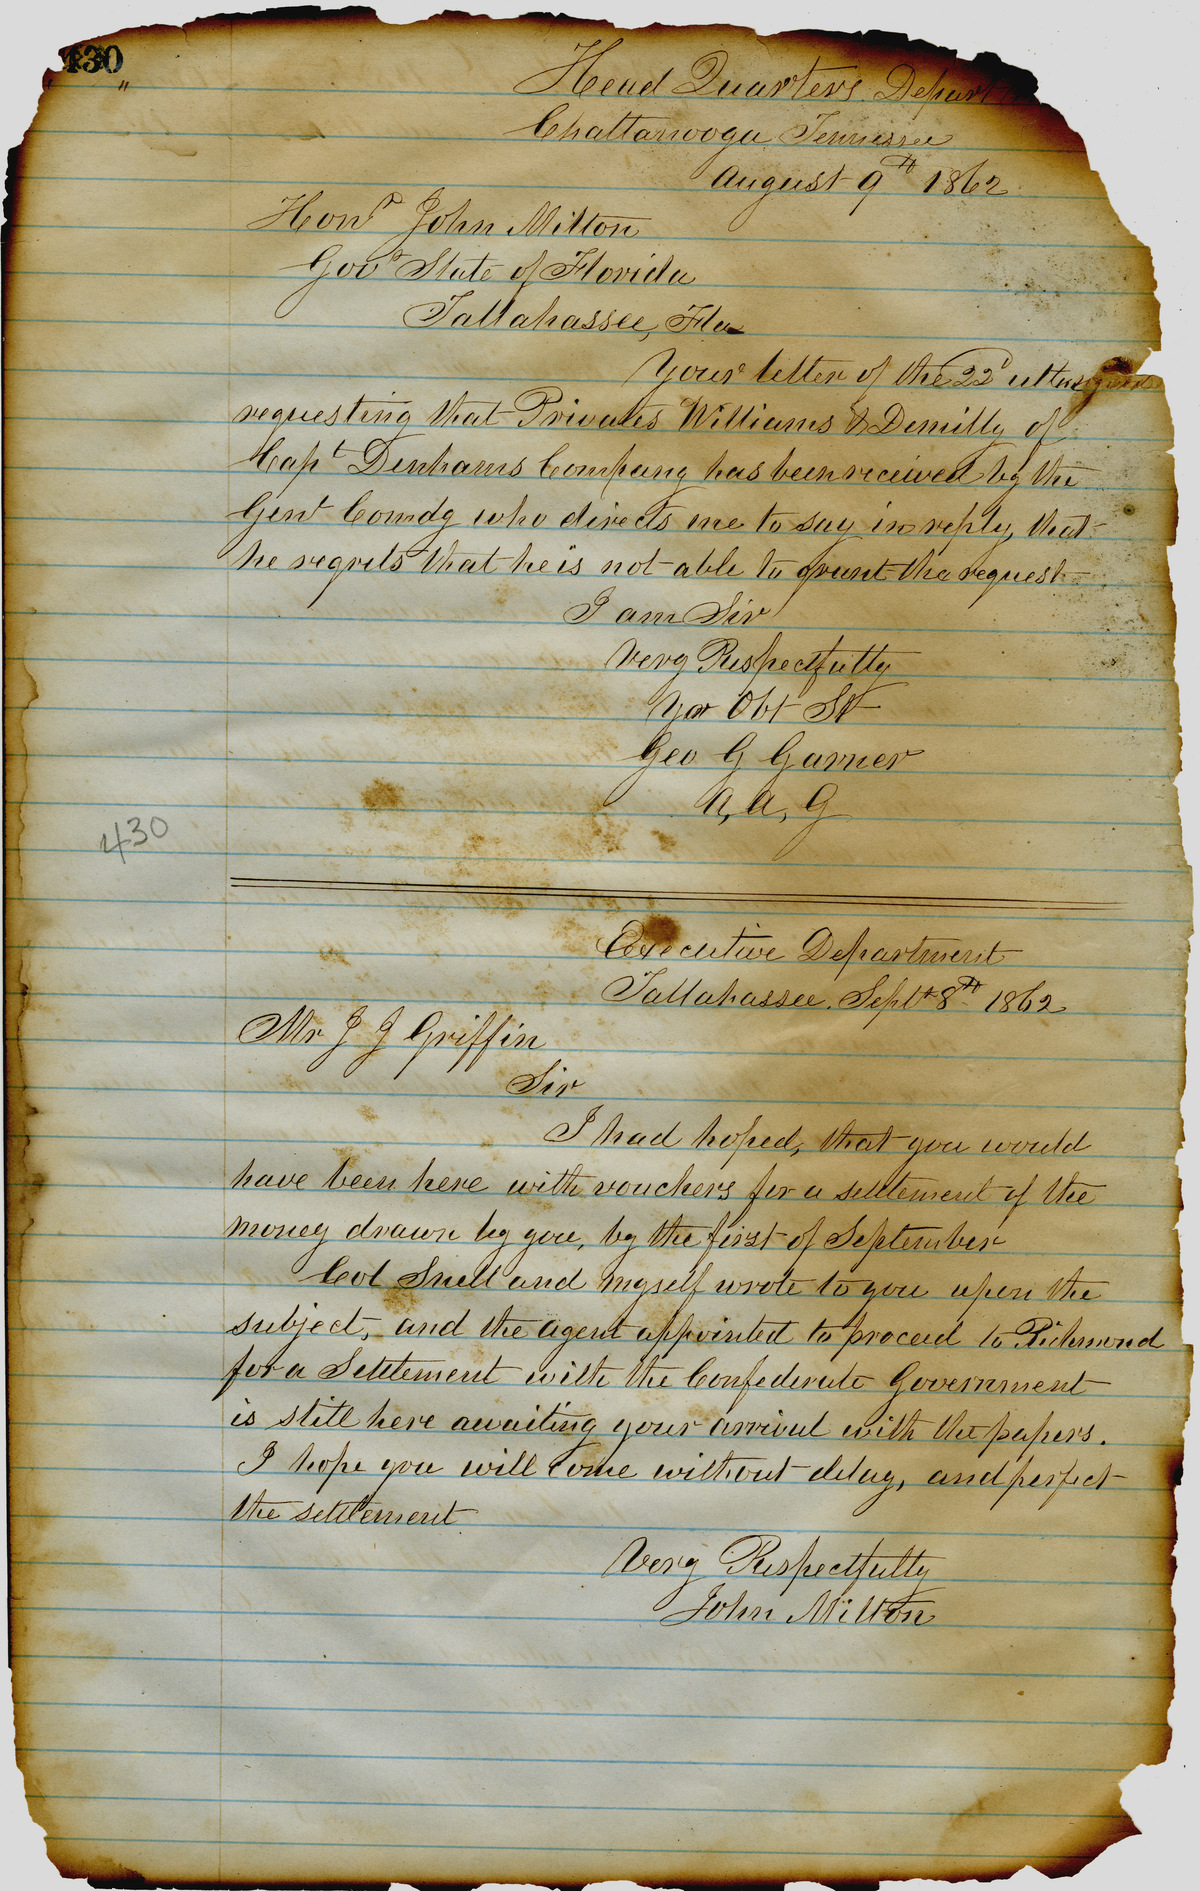 430
Head Quarters. Depart
Chattanooga, Tennessee
August 9th 1862
Honl John Milton
Govr State of Florida
Tallahassee, Fla
Your letter of the 22d ulto
requesting that Privates Williams & Demilly of
Capt Denhams Company has been received by the
Genl Comdg who directs me to say in reply, that
he regrets that he is not able to grant the request
I am Sir
Very Respectfully
Yor Obt St
Geo G Garner
A, A, G
430
Executive Department
Tallahassee. Sept 8th 1862
Mr J J Griffin
Sir
I had hoped, that you would
have been here with vouchers for a settlement of the
money drawn by you, by the first of September
Col Snell and myself wrote to you upon the
subject, and the agent appointed to proceed to Richmond
for a Settlement with the Confederate Government
is still here awaiting your arrival with the papers.
I hope you will come without delay, and perfect
the settlement
Very Respectfully
John Milton